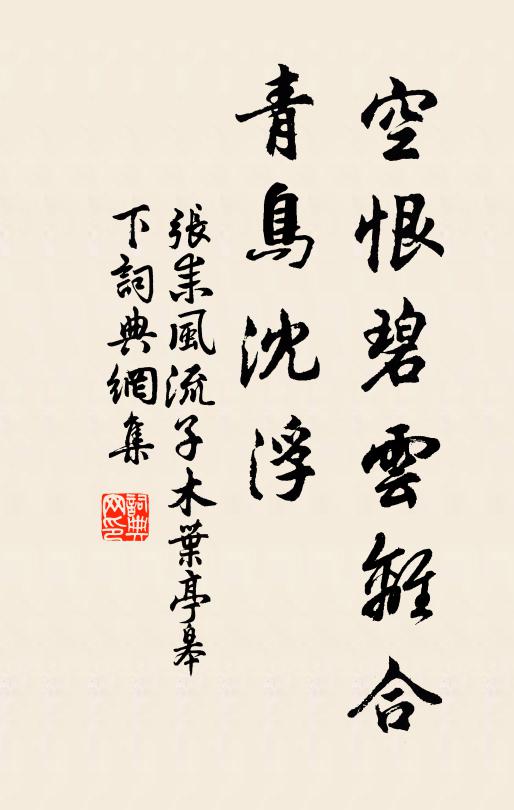 空恨碧雲離合
青鳥沈浮
張耒風流子木葉亭皋
下詞典網集
詞典網印